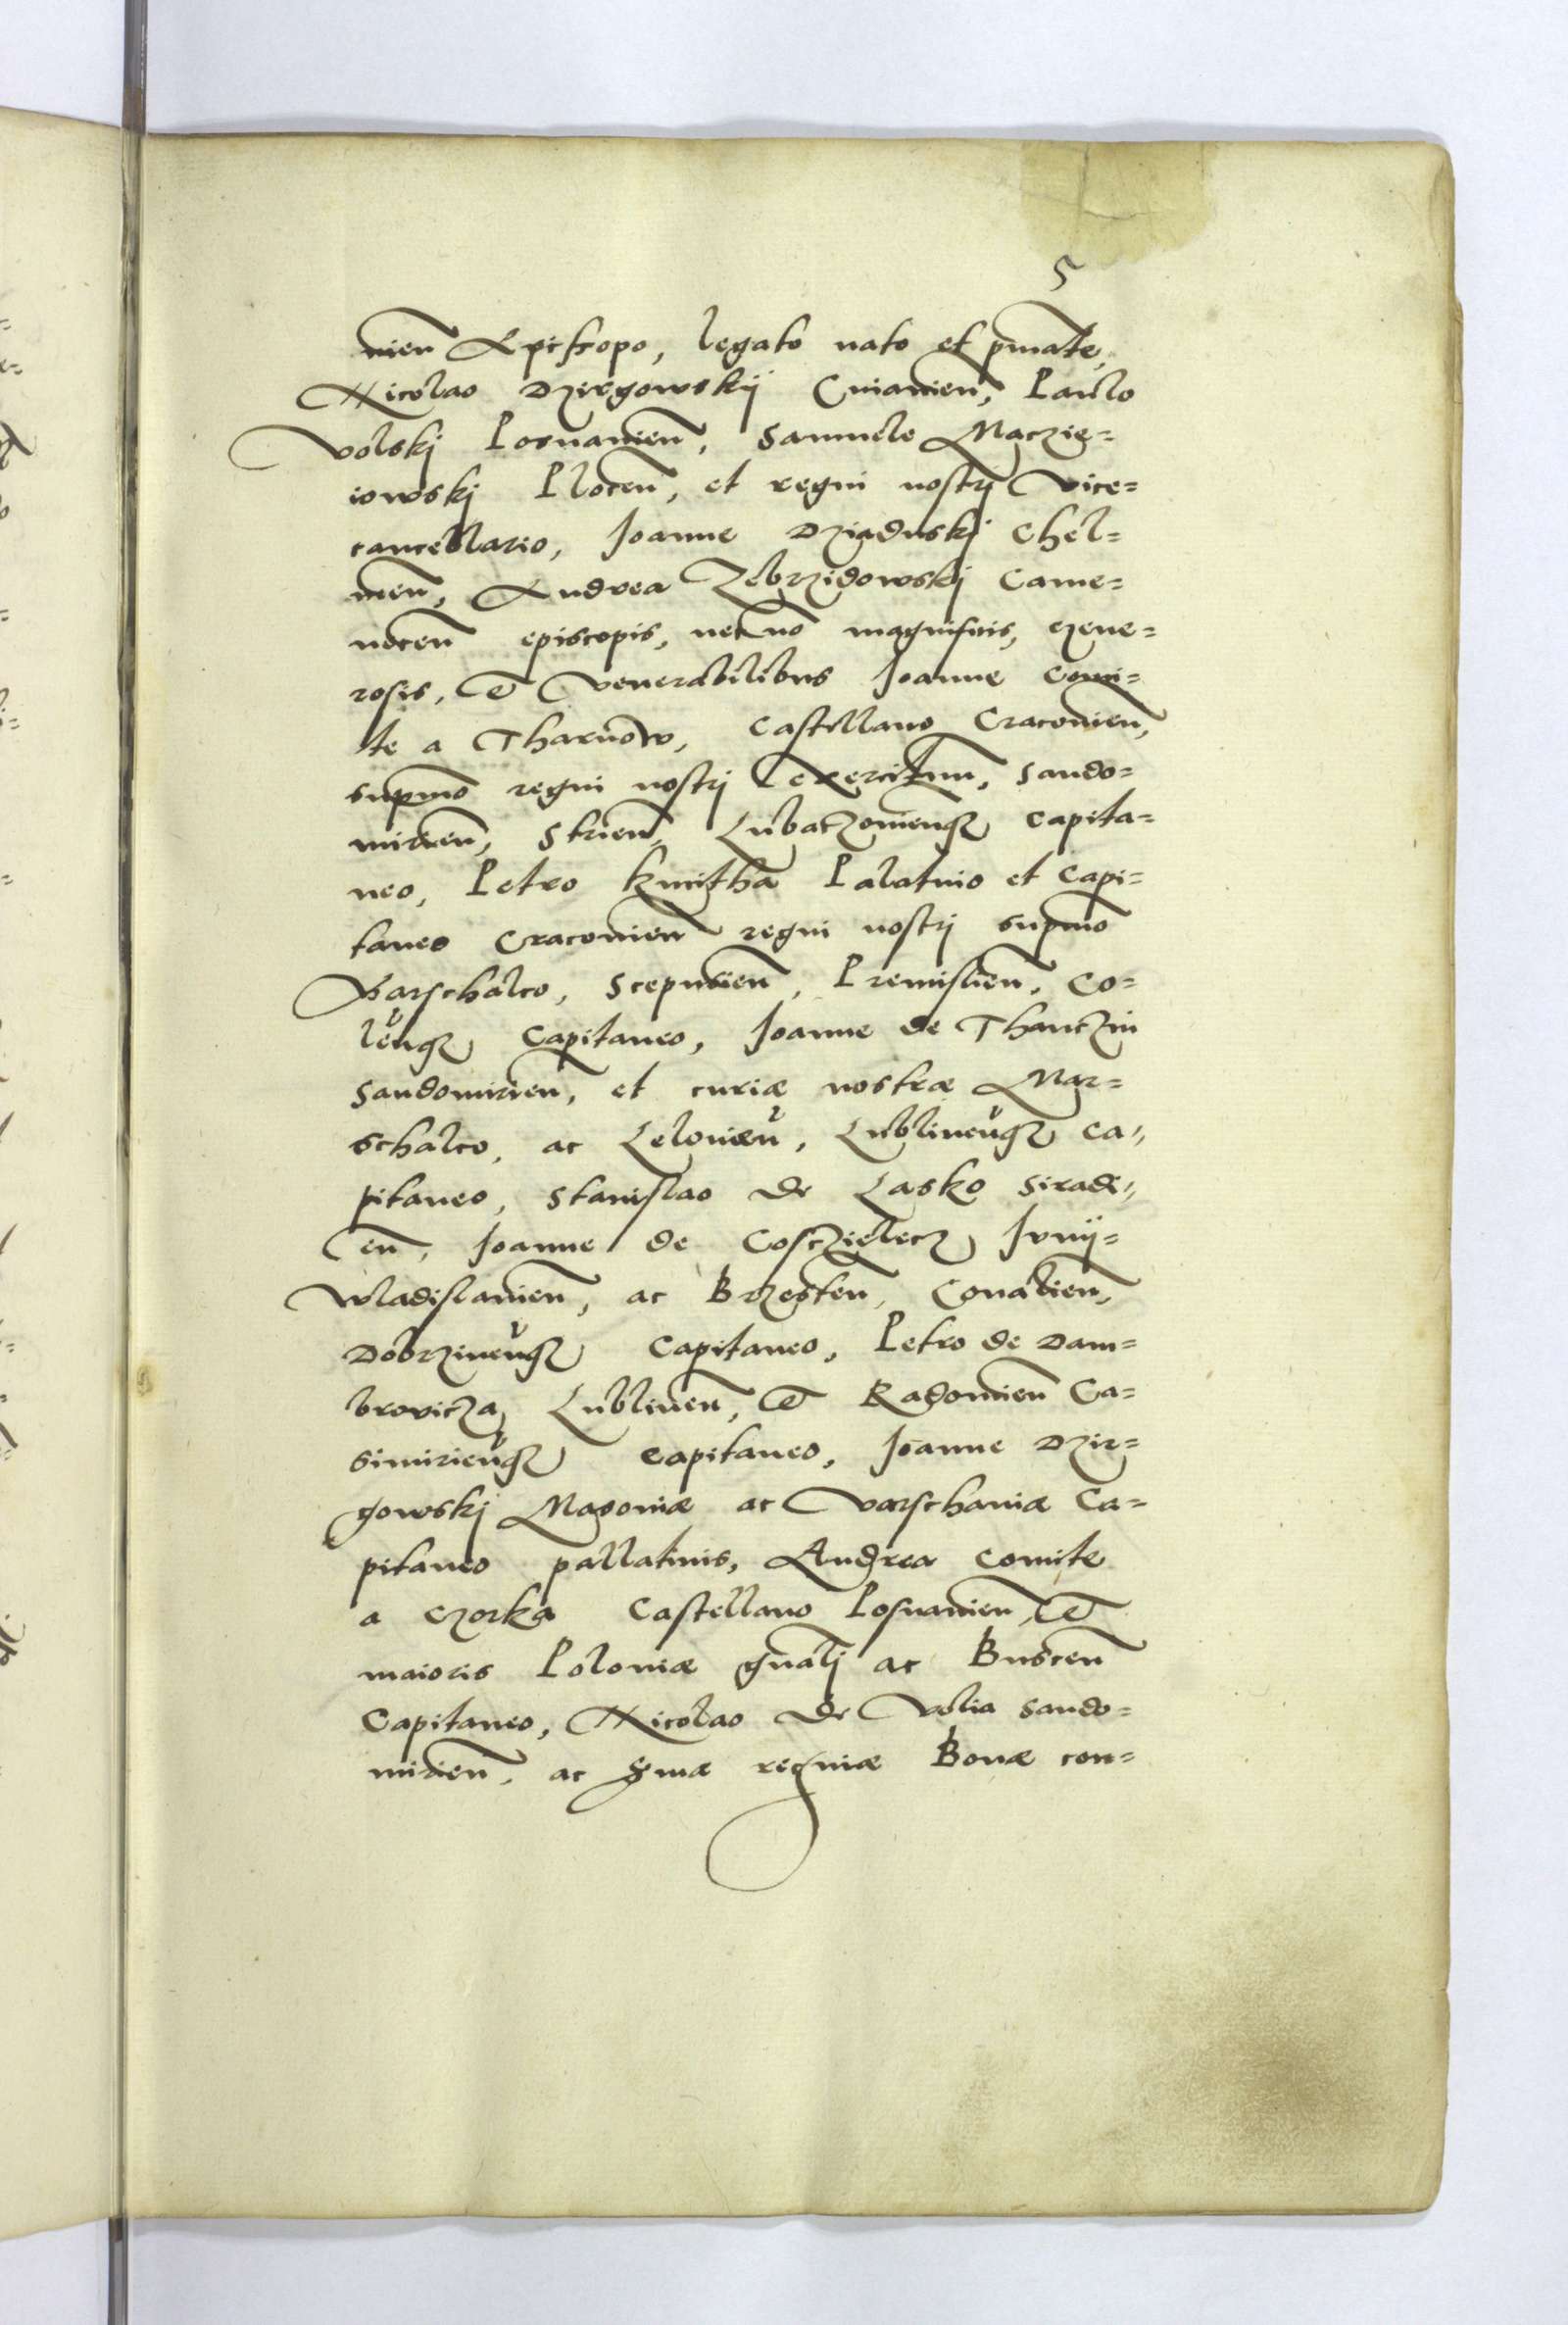 5
nien̄ Episcopo, legato nato et pm̄ate,
Nicolao Dzirgowskij Cuiauien̄, Paulo
Volskj Posnanien̄, Samuele Maczie=
iowskj Plocen̄, et regni nostrj Vice=
cancellario, Joanne Dziaduskj Chel=
men̄, Andrea Zebrzidowskj Came=
necen̄ episcopis, necno magnificis, gene=
rosis, et Venerabilibus Joanne Comi=
te a Tharnow, Castellano Cracouien̄,
supm̄o regni nostrj exercituum, Sando=
mirien̄, Strien̄, Lubaczouien̄qꝫ capita=
neo, Petro Kmitha Palatino et Capi=
taneo Cracouien̄ regni nostrj supm̄o
Marschalco, Scepusien̄, Premislien̄, Co=
len̄qꝫ Capitaneo, Joanne de Thanczin
Sandomirien̄, et curiæ nostræ Mar=
schalco, ac Lelouien̄, Lublinen̄qꝫ Ca=
pitaneo, Stanislao de Lasko Siradi=
en̄, Joanne de Cosczielecz Junij=
wladislauien̄, ac Brzesten̄, Conatien̄,
Dobrzinen̄qꝫ Capitaneo, Petro de Dam=
browicza Lublinen̄, et Radomien̄ Ca=
simirien̄qꝫ Capitaneo, Joanne Dzir=
gowskj Masouiæ ac Varschauiæ Ca=
pitaneo pallatinis, Andrea comite
a Gzorka Castellano Posnanien̄, et
maioris Poloniæ gn̄alj ac Buscen̄
Capitaneo, Nicolao de Volia Sando=
mirien̄, ac Sr̄mæ reginæ Bonæ con=